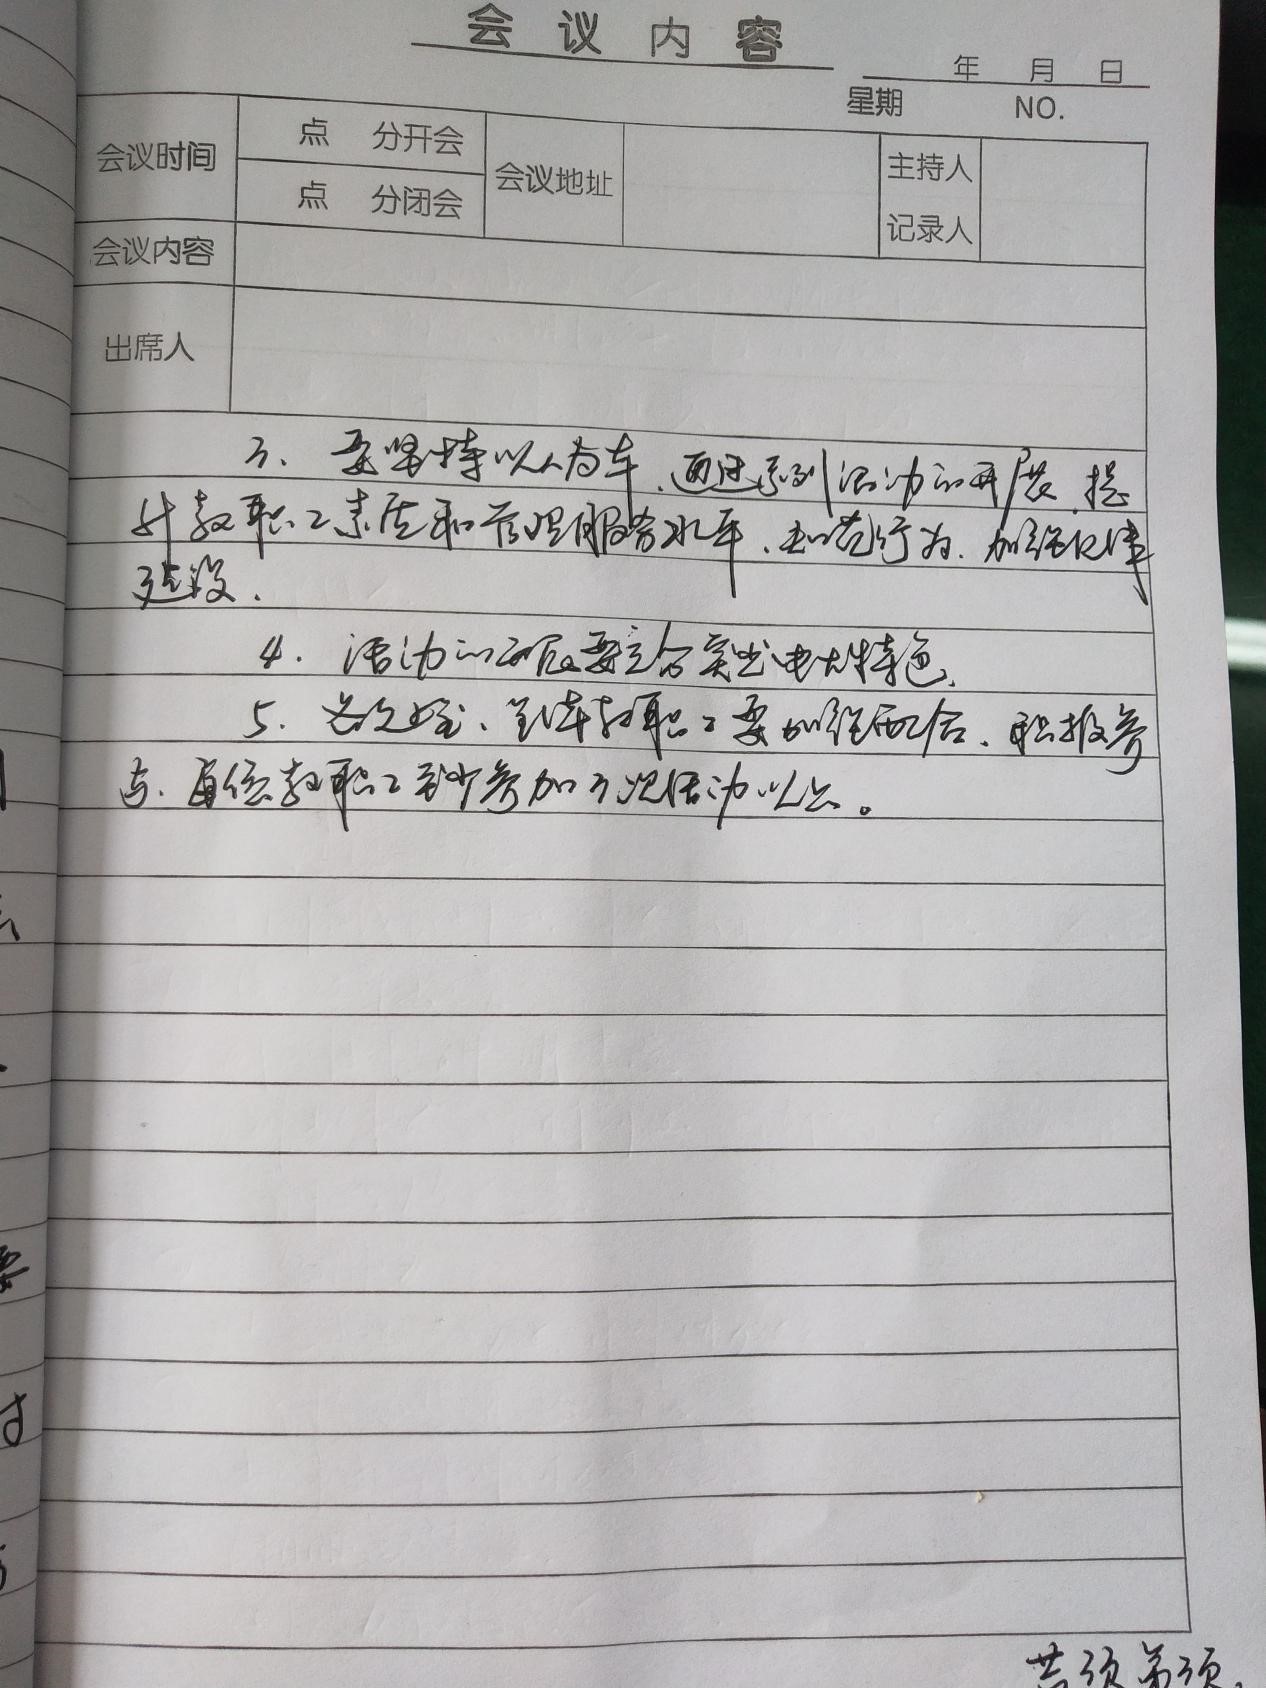 会议内容
年 月 日
星期 NO.
会议时间 点 分开会 会议地址 主持人
点 分闭会 记录人
会议内容
出席人
3. 要坚持以人为本、通过系列活动的开展,提
升教职工素质和管理服务水平、规范行为、加强纪律
建设.
4. 活动的开展要充分突出电大特色.
5. 各处室、全体教职工要加强配合、积极参
与、每位教职工至少参加3次活动以上。
共 页 第 页